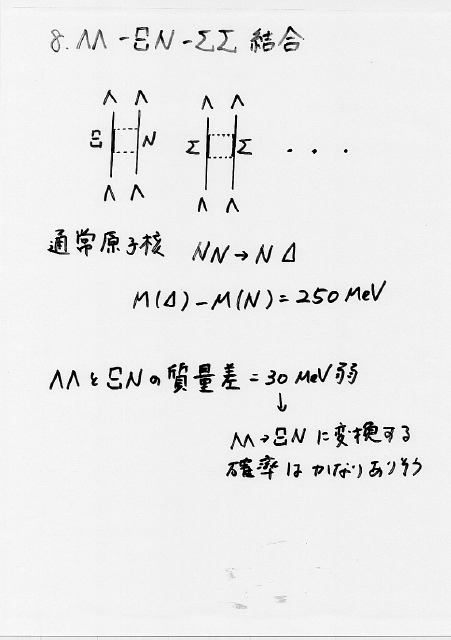 8. ΛΛ-ΞN-ΣΣ 結合
Λ Λ Λ Λ
Ξ N Σ Σ . . .
Λ Λ Λ Λ
通常原子核 NN→NΔ
M(Δ)-M(N)=250 MeV
ΛΛとΞNの質量差=30 MeV弱
↓
ΛΛ→ΞNに変換する
確率はかなりありそう